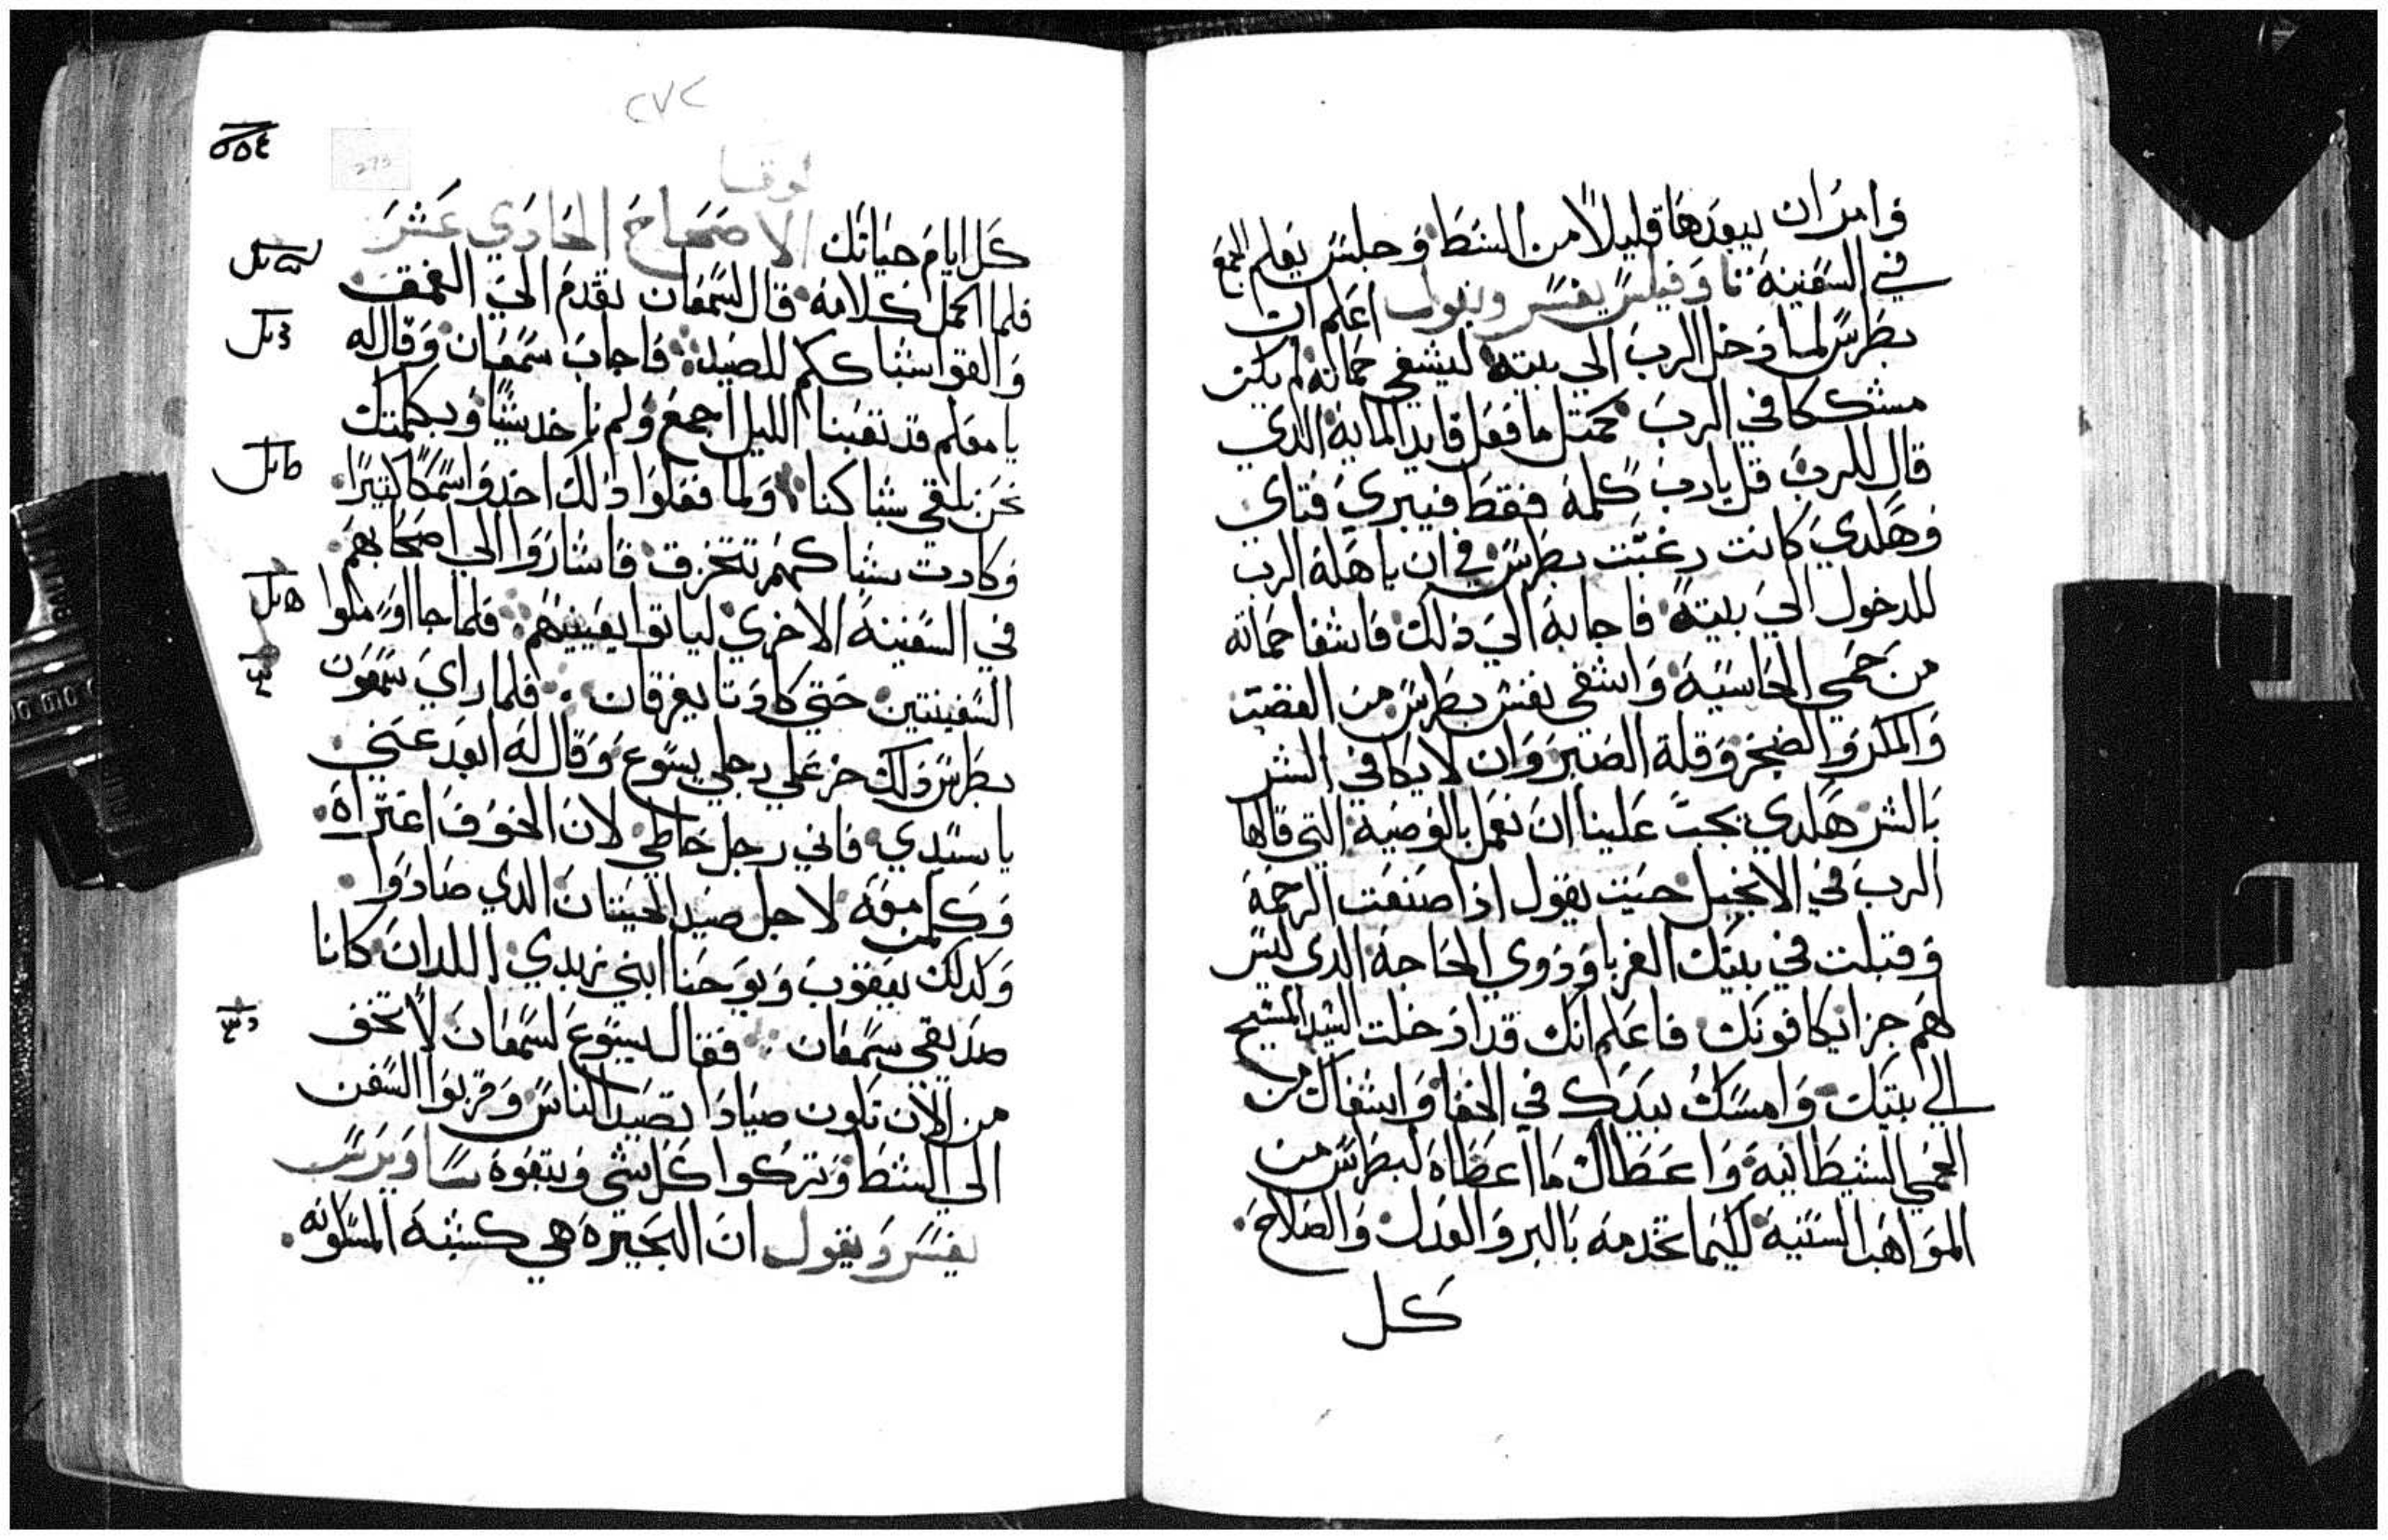 وامر ان يبعدها قليلاً من الشط وجلس يعلم الجمع
في السفينة تاوفيلس يفسر ويقول اعلم ان
بطرس لما دخل الرب الي بيته ليشفي حماته لم يكن
مشككا في الرب كمتل ما فعل قايد الماية الدي
قال للرب قل يارب كلمة فقط فيبري فتاي
وهكدي كانت رغبت بطرس في ان ياهله الرب
للدخول الي بيته فاجابه الي دلك فاشفا حماته
من حمي الحاسية واشفي نفس بطرس من الغضب
والمكر والضجر وقلة الصبر وان لا يكافي الشر
بالشر هكدي يجب علينا ان نعمل بالوصية التي قالها
الرب في الانجيل حيت يقول اذا صنعت الرحمة
وقبلت في بيتك الغربا ودوي الحاجة الدي ليس
لهم جزا يكافونك فاعلم انك قد ادخلت السيد المسيح
الي بيتك وامسك بيدك في الخفا واشفاك من
الحمي الشيطانية واعطاك ما اعطاه لبطرس من
المواهب السنية لكيما تخدمه بالبر والعدل والصلاح
كل
٢٧٢
٥٥٤
273
لوقا
كل ايام حياتك الاصحاح الحادي عشر
فلما اكمل كلامه قال لسمعان تقدم الي العمق
والقوا شباككم للصيد فاجاب سمعان وقال له
يا معلم قد تعبنا الليل اجمع ولم ناخد شيًا وبكلمتك
نحن نلقي شباكنا ولما فعلوا دلك اخدوا سمكًا كتيرًا
وكادت شباكهم تتخرق فاشاروا الي اصحابهم
في السفينة الاخري لياتوا يعينيهم فلما جاا وملوا
السفينتين حتي كادتا يغرقان فلما راي سمعون
بطرس دلك خر علي رجلي يسوع وقال له ابعد عني
يا سيدي فاني رجل خاطي لان الخوف اعتراه
وكلمن معه لاجل صيد الحيتان الدي صادوا
وكدلك يعقوب ويوحنا ابني زبدي اللدان كانا
صديقي سمعان فقال يسوع لسمعان لا تخف
من الان تكون صيادا تصيد الناس وقربوا السفن
الي الشط وتركوا كل شي وتبعوه
يفسر ويقول ان البحيرة هي كشبه المسكونه